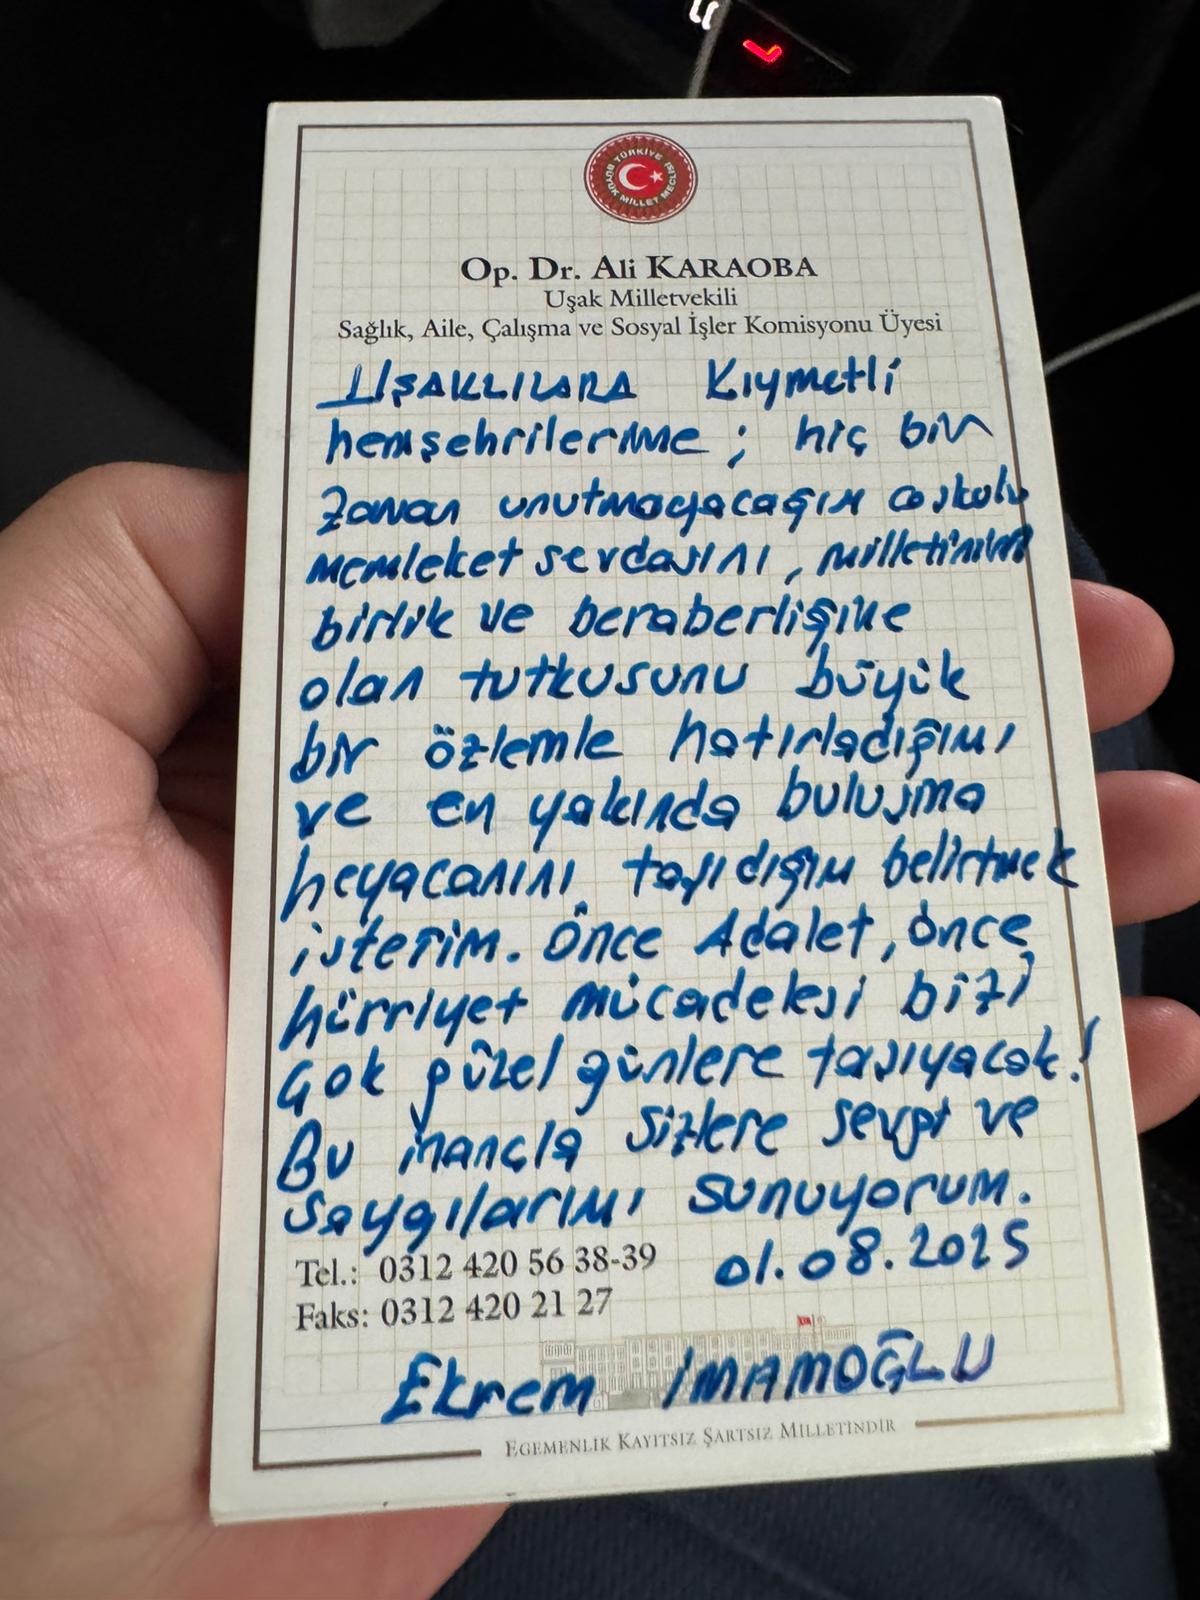 TÜRKİYE BÜYÜK MİLLET MECLİSİ
Op. Dr. Ali KARAOBA
Uşak Milletvekili
Sağlık, Aile, Çalışma ve Sosyal İşler Komisyonu Üyesi
UŞAKLILARA Kıymetli
hemşehrilerime ; hiç bir
zaman unutmayacağım coşkulu
memleket sevdasını, milletinin
birlik ve beraberliğine
olan tutkusunu büyük
bir özlemle hatırladığımı
ve en yakında buluşma
heyacanını taşıdığımı belirtmek
isterim. Önce Adalet, önce
hürriyet mücadelesi bizi
çok güzel günlere taşıyacak!
Bu inançla sizlere sevgi ve
saygılarımı sunuyorum.
Tel.: 0312 420 56 38-39 01.08.2025
Faks: 0312 420 21 27
Ekrem İMAMOĞLU
EGEMENLİK KAYITSIZ ŞARTSIZ MİLLETİNDİR